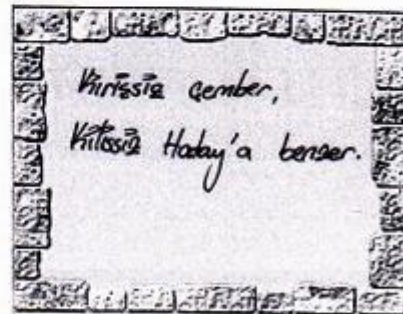 Kirişsiz çember,
Kilissiz Hatay'a benzer.